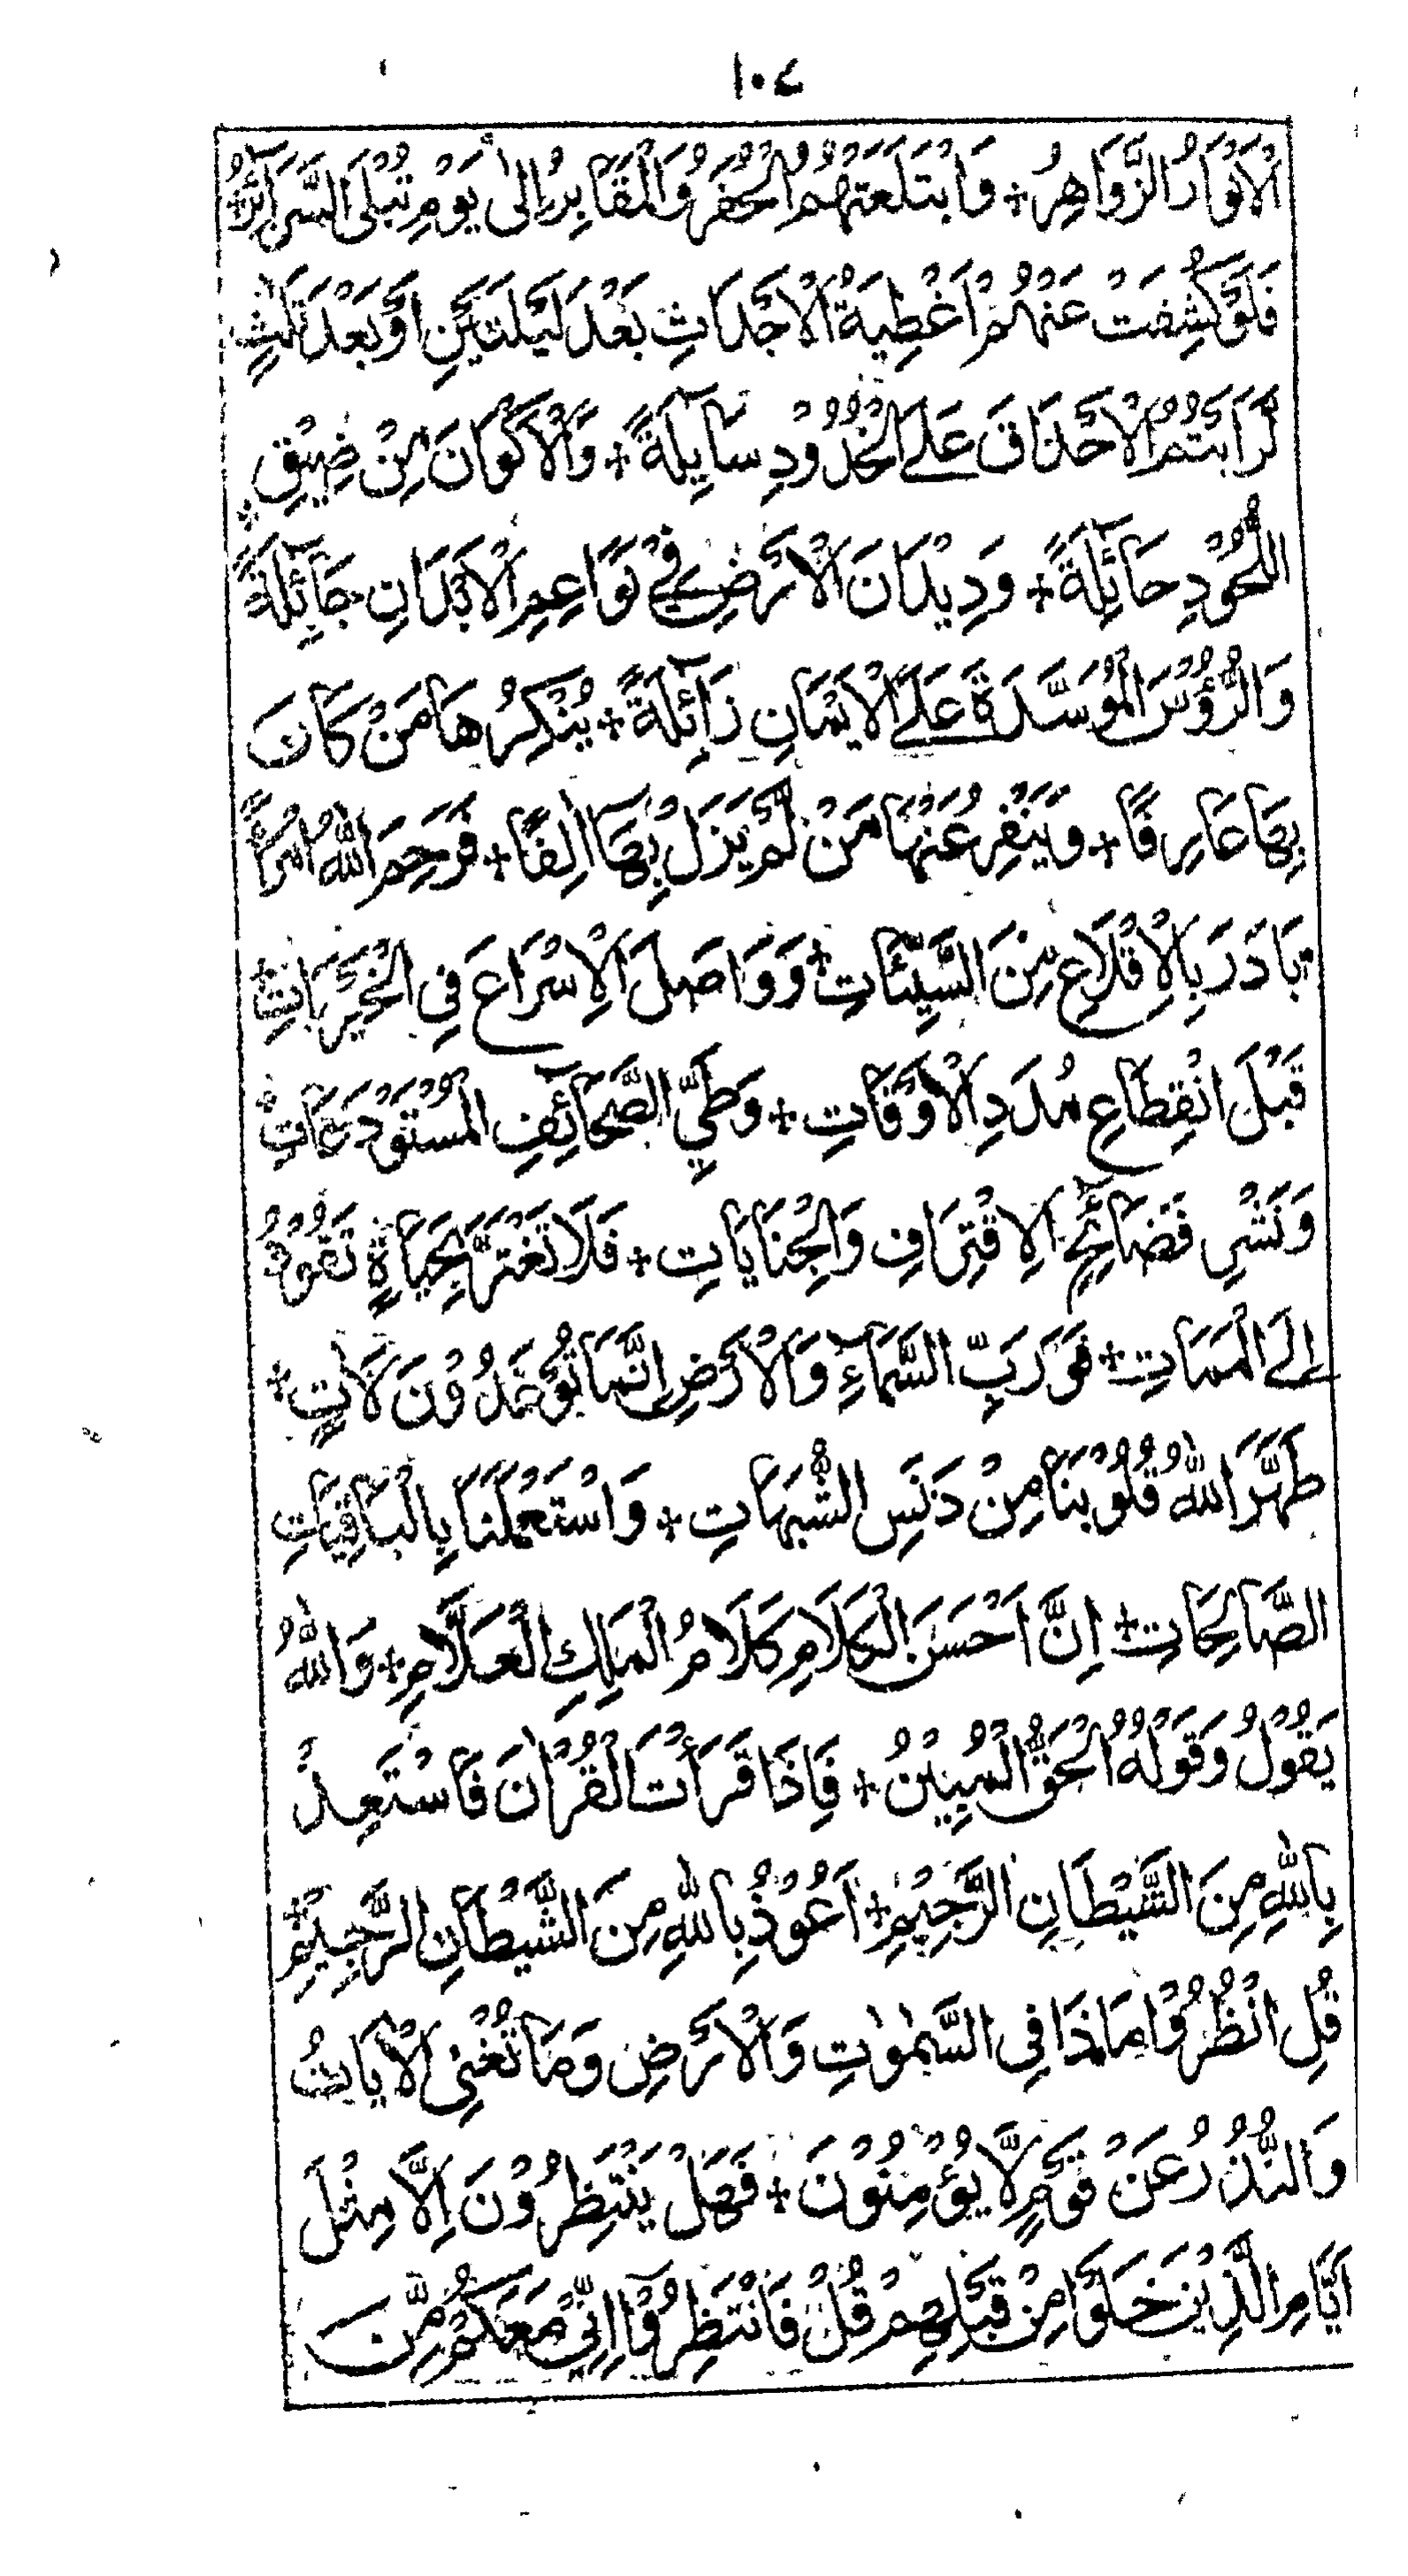 ١٠٤
الْاَنْوَارُ الزَّوَاهِرُ + وَابْتَلَعَتْهُمُ الْحُفَرُ وَالْمَقَابِرُ اِلٰى يَوْمِ تُبْلَى السَّرَآئِرُ +
فَلَوْ كُشِفَتْ عَنْهُمْ اَغْطِيَةُ الْاَجْدَاثِ بَعْدَ لَيْلَتَيْنِ اَوْ بَعْدَ ثَلٰثٍ
لَرَاَيْتُمُ الْاَحْدَاقَ عَلَى الْخُدُوْدِ سَآئِلَةً + وَالْاَكْوَانَ مِنْ ضِيْقِ
اللُّحُوْدِ حَآئِلَةً + وَدِيْدَانَ الْاَرْضِ فِيْ نَوَاعِمِ الْاَبْدَانِ جَآئِلَةً
وَالرُّؤُسَ الْمُوَسَّدَةَ عَلَى الْاَيْمَانِ زَآئِلَةً + يُنْكِرُهَا مَنْ كَانَ
بِهَا عَارِفًا + وَيَنْفِرُ عَنْهَا مَنْ لَمْ يَزَلْ بِهَا اٰلِفًا + فَرَحِمَ اللّٰهُ امْرَأً
بَادَرَ بِالْاِقْلَاعِ مِنَ السَّيِّئَاتِ + وَوَاصَلَ الْاِسْرَاعَ فِي الْخَيْرَاتِ +
قَبْلَ انْقِطَاعِ مُدَدِ الْاَوْقَاتِ + وَطَيِّ الصَّحَآئِفِ الْمُسْتَوْدَعَاتِ +
وَنَشْرِ فَضَآئِحِ الِاقْتِرَافِ وَالْجِنَايَاتِ + فَلَا تَغْتَرَّ بِحَيَاةٍ تَقُوْدُ
اِلَى الْمَمَاتِ + فَوَرَبِّ السَّمَآءِ وَالْاَرْضِ اِنَّمَا تُوْعَدُوْنَ لَاٰتٍ +
طَهَّرَ اللّٰهُ قُلُوْبَنَا مِنْ دَنَسِ الشُّبُهَاتِ + وَاسْتَعْمَلَنَا بِالْبَاقِيَاتِ
الصَّالِحَاتِ + اِنَّ اَحْسَنَ الْكَلَامِ كَلَامُ الْمَلِكِ الْعَلَّامِ + وَاللّٰهُ
يَقُوْلُ وَقَوْلُهُ الْحَقُّ الْمُبِيْنُ + فَاِذَا قَرَأْتَ الْقُرْاٰنَ فَاسْتَعِذْ
بِاللّٰهِ مِنَ الشَّيْطَانِ الرَّجِيْمِ + اَعُوْذُ بِاللّٰهِ مِنَ الشَّيْطَانِ الرَّجِيْمِ +
قُلِ انْظُرُوْا مَاذَا فِي السَّمٰوٰتِ وَالْاَرْضِ وَمَا تُغْنِي الْاٰيَاتُ
وَالنُّذُرُ عَنْ قَوْمٍ لَّا يُؤْمِنُوْنَ + فَهَلْ يَنْتَظِرُوْنَ اِلَّا مِثْلَ
اَيَّامِ الَّذِيْنَ خَلَوْا مِنْ قَبْلِهِمْ قُلْ فَانْتَظِرُوْا اِنِّيْ مَعَكُمْ مِّنَ